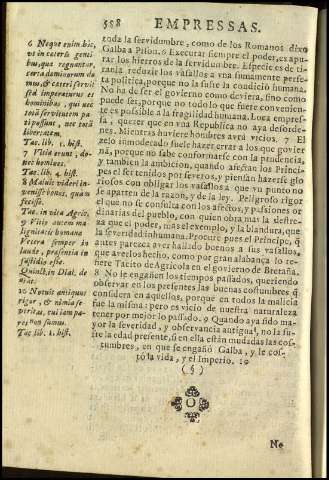 508 EMPRESSAS.
6 Neque enim hic,
vt in cæteris genti
bus, quæ regnantur,
certa dominorum do
mus, & cæteri servi
sed imperaturus es
hominibus, qui nec
totã servitutem pa
ti possunt, nec totã
libertatem.
Tac. lib. 1. hist.
7 Vitia erunt, do-
nec homines.
Tac. lib. 4. hist.
8 Maluit videri in-
venisse bonos, quàm
fecisse.
Tac. in vita Agric.
9 Vitio autem ma-
lignitatis humanæ
Vetera semper in
laude, præsentia in
fastidio esse.
Quintil. in Dial. de
orat.
10 Nocuit antiquus
rigor, & nimia se-
veritas, cui iam pa-
res non sumus.
Tac. lib. 1. hist.
toda la servidumbre, como de los Romanos dixo
Galba a Pison. 6 Executar siempre el poder, es apu-
rar los hierros de la servidumbre. Especie es de ti-
rania reduzir los vasallos a vna sumamente perfe-
ta politica, porque no la sufre la condiciõ humana.
No ha de ser el govierno como deviera, sino como
puede ser, porque no todo lo que fuere convenien-
te es possible a la fragilidad humana. Loca empres-
sa, querer que en vna Republica no aya desorde-
nes. Mientras huviere hombres avrá vicios. 7 El
zelo inmoderado suele hazer errar a los que govier
nã, porque no sabe conformarse con la prudencia,
y tambien la ambicion, quando afectan los Princi-
pes el ser tenidos por severos, y piensan hazerse glo
riosos con obligar los vasallos a que vn punto no
se aparten de la razon, y de la ley. Peligroso rigor
el que no se consulta con los afectos, y passiones or
dinarias del pueblo, con quien obra mas la destre-
za que el poder, mas el exemplo, y la blandura, que
la severidad inhumana. Procure pues el Principe, q̃
antes parezca aver hallado buenos a sus vasallos,
que averlos hecho, como por gran alabança lo re-
fiere Tacito de Agricola en el govierno de Bretaña.
8 No le engañen los tiempos passados, queriendo
observar en los presentes las buenas costumbres q̃
considera en aquellos, porque en todos la malicia
fue la misma: pero es vicio de nuestra naturaleza
tener por mejor lo passado. 9 Quando aya sido ma-
yor la severidad, y observancia antiguã, no la su-
fre la edad presente, si en ella están mudadas las cos-
tumbres, en que se engañó Galba, y le cos-
tó la vida, y el Imperio. 10
(§)
Ne